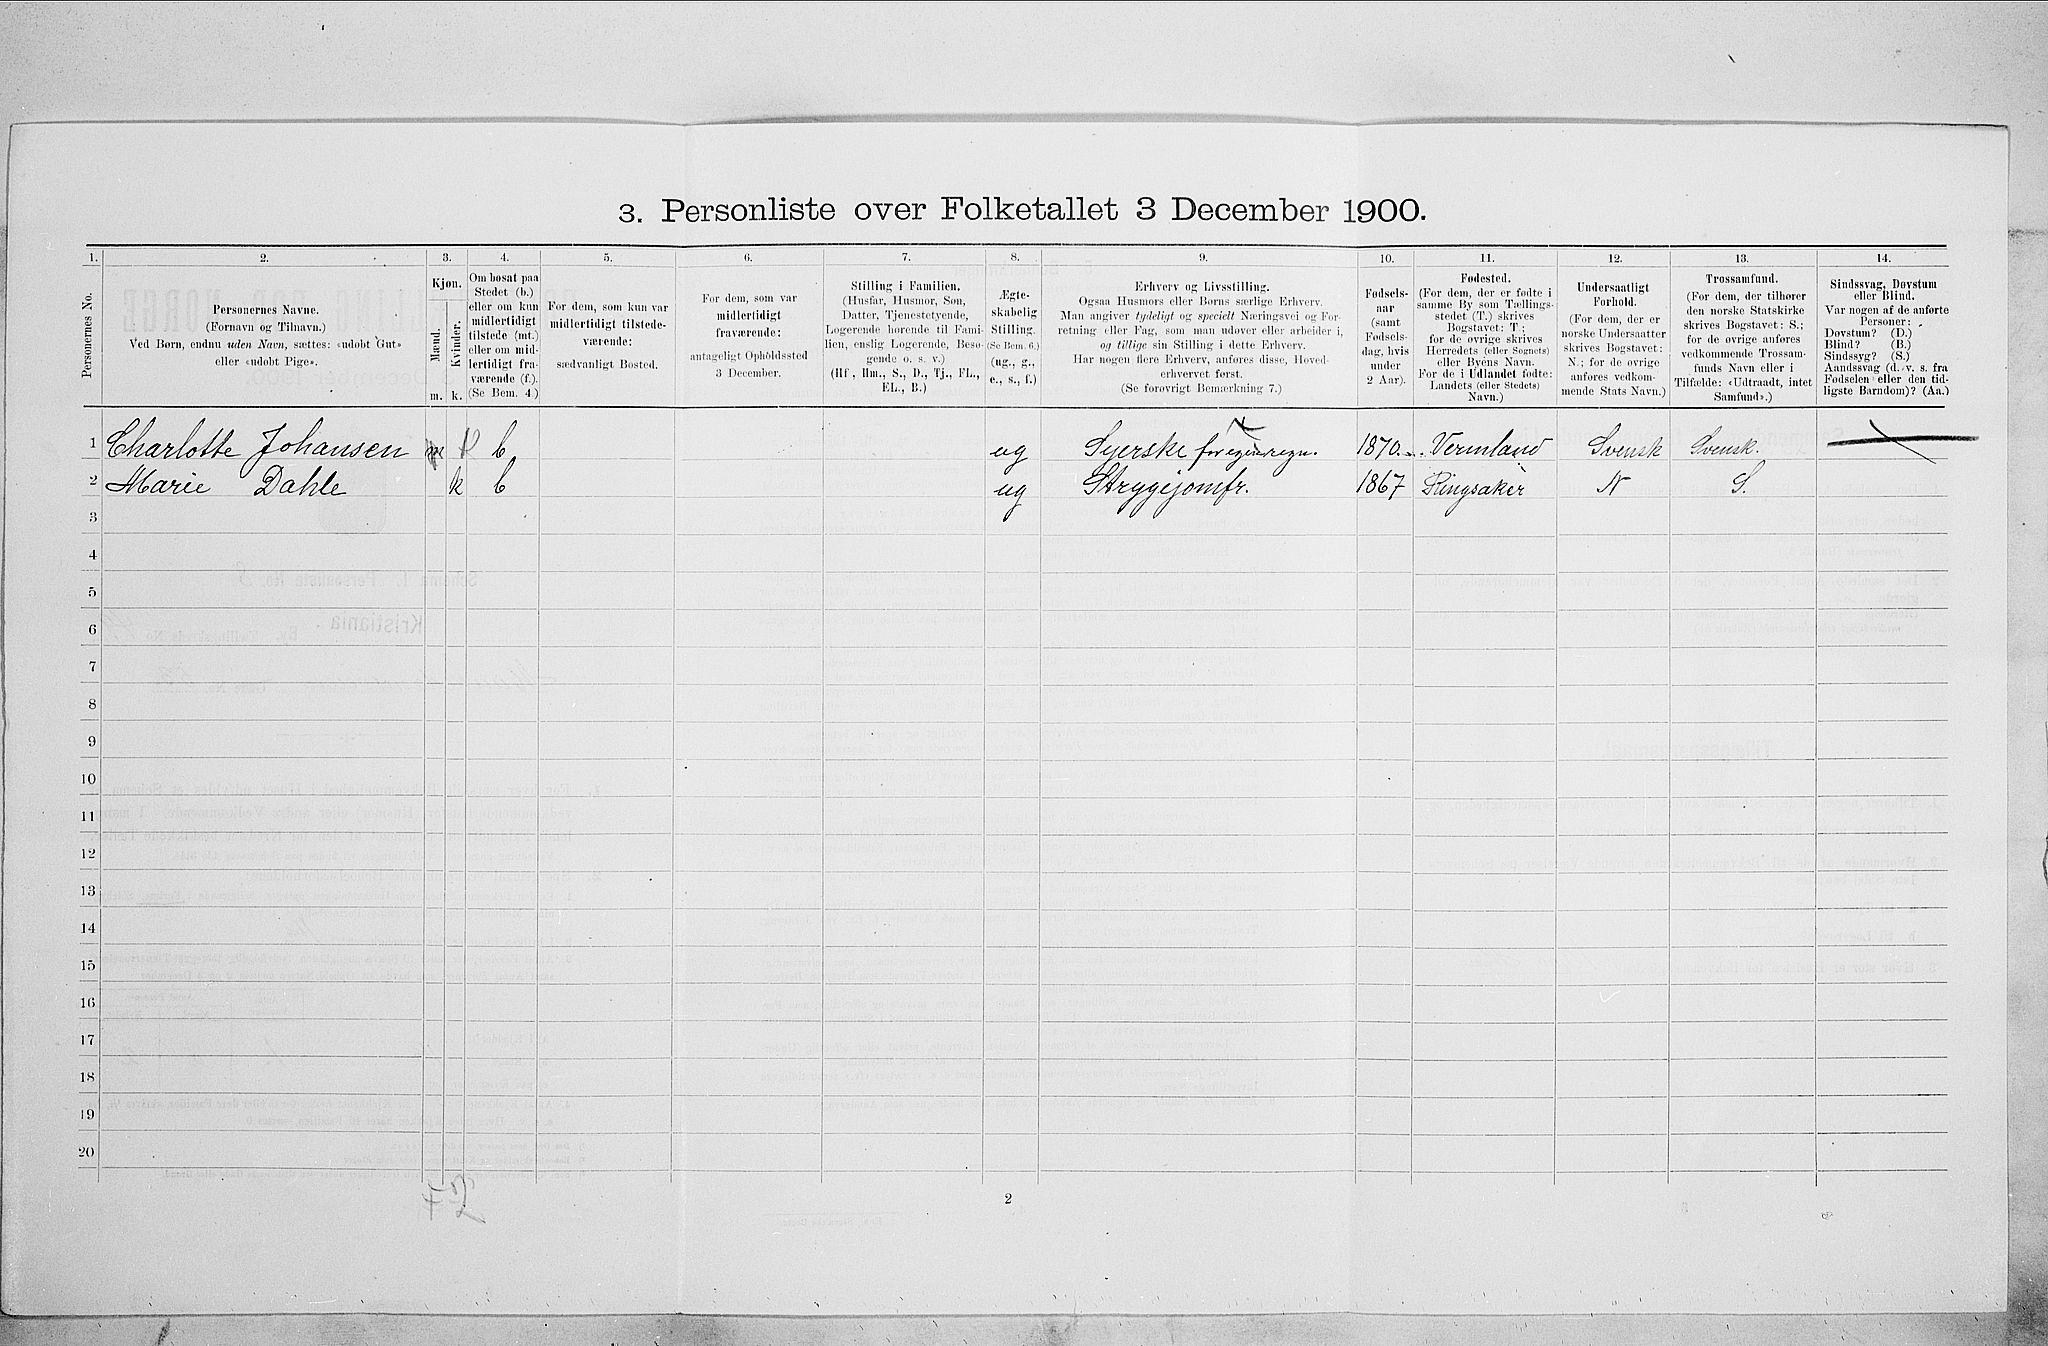 3. Personliste over Folketallet 3 December 1900.
1. 2. 3. 4. 5. 6. 7. 8. 9. 10. 11. 12. 13. 14.
Personernes No.
Personernes Navne.
(Fornavn og Tilnavn.)
Ved Børn, endnu uden Navn, sættes: «udøbt Gut»
eller «udøbt Pige».
Kjøn.
Mænd.
Kvinder.
m. k.
Om bosat paa
Stedet (b.)
eller om kun
midlertidigt
tilstede (mt.)
eller om mid-
lertidigt fra-
værende (f.).
(Se Bem. 4.)
For dem, som kun var
midlertidigt tilstede-
værende:
sædvanligt Bosted.
For dem, som var
midlertidigt
fraværende:
antageligt Opholdssted
3 December.
Stilling i Familien.
(Husfar, Husmor, Søn,
Datter, Tjenestetyende,
Logerende hørende til Fami-
lien, enslig Logerende, Besø-
gende o. s. v.)
(Hf., Hm., S., D., Tj., FL.,
EL., B.)
Ægte-
skabelig
Stilling.
(Se Bem. 6.)
(ug., g.,
e., s., f.)
Erhverv og Livsstilling.
Ogsaa Husmors eller Børns særlige Erhverv.
Man angiver tydeligt og specielt Næringsvei og For-
retning eller Fag, som man udøver eller arbeider i,
og tillige sin Stilling i dette Erhverv.
Har nogen flere Erhverv, anføres disse, Hoved-
erhvervet først.
(Se forøvrigt Bemærkning 7.)
Fødsels-
aar
(samt
Fødsels-
dag, hvis
under
2 Aar).
Fødested.
(For dem, der er fødte i
samme By som Tællings-
stedet (T.) skrives
Bogstavet: T;
for de øvrige skrives
Herredets (eller Sognets)
eller Byens Navn.
For de i Udlandet fødte:
Landets (eller Stedets)
Navn.)
Undersaatligt
Forhold.
(For dem, der er
norske Undersaatter
skrives Bogstavet:
N.; for de øvrige
anføres vedkom-
mende Stats Navn.)
Trossamfund.
(For dem, der tilhører
den norske Statskirke
skrives Bogstavet: S.;
for de øvrige anføres
vedkommende Trossam-
funds Navn eller i
Tilfælde: «Udtraadt, intet
Samfund».)
Sindssvag, Døvstum
eller Blind.
Var nogen af de anførte
Personer:
Døvstum? (D.)
Blind? (B.)
Sindssyg? (S.)
Aandssvag (d. v. s. fra
Fødselen eller den tid-
ligste Barndom)? (Aa.)
1 Charlotte Johansen m b ug Syerske for egen regn. 1870 Vermland Svensk Svensk.
2 Marie Dahle k b ug Strygejomfr. 1867 Ringsaker N S.
3
4
5
6
7
8
9
10
11
12
13
14
15
16
17
18
19
20
2